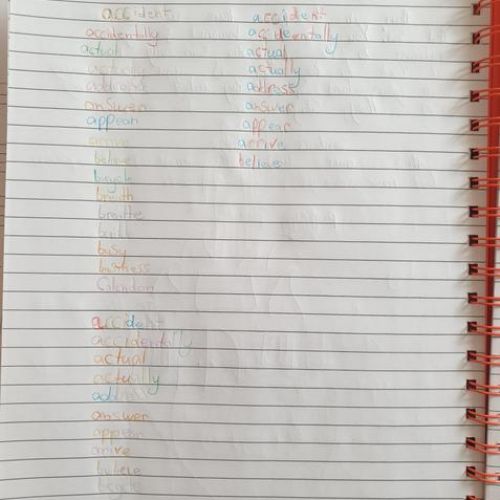 accident
accidentally
actual
actually
address
answer
appear
arrive
believe
bicycle
breath
breathe
build
busy
business
Calendar
accident
accidentally
actual
actually
address
answer
appear
arrive
believe
accident
accidentally
actual
actually
answer
appear
arrive